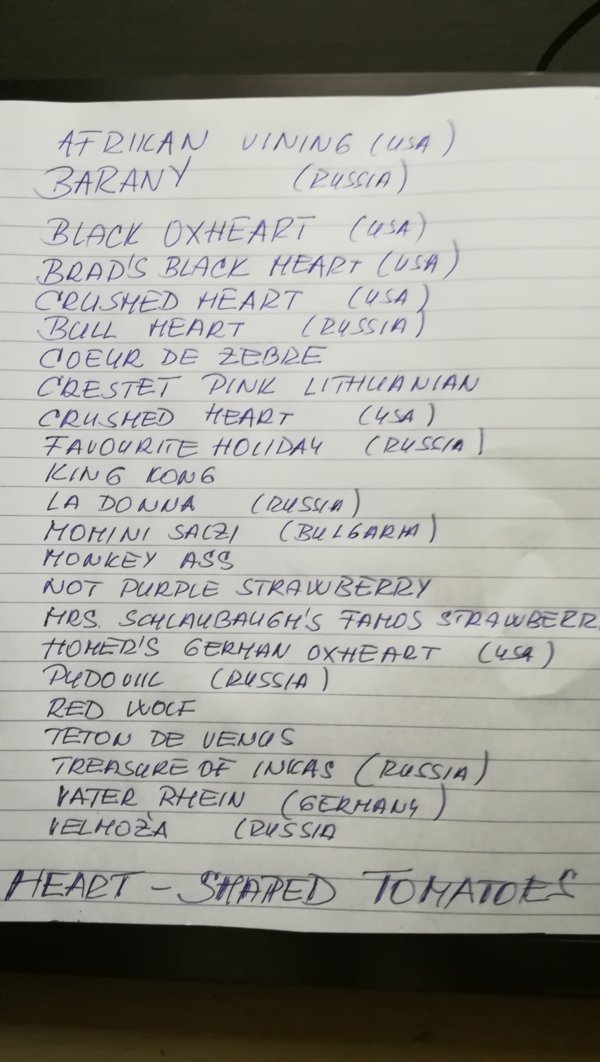 AFRIKAN VINING (USA)
BARANY (RUSSIA)
BLACK OXHEART (USA)
BRAD'S BLACK HEART (USA)
CRUSHED HEART (USA)
BULL HEART (RUSSIA)
COEUR DE ZEBRE
CRESTET PINK LITHUANIAN
CRUSHED HEART (USA)
FAVOURITE HOLIDAY (RUSSIA)
KING KONG
LA DONNA (RUSSIA)
MOMINI SALZI (BULGARIA)
MONKEY ASS
NOT PURPLE STRAWBERRY
MRS. SCHLAUBAUGH'S FAMOS STRAWBERR
HOMER'S GERMAN OXHEART (USA)
PUDOVIK (RUSSIA)
RED WOLF
TETON DE VENUS
TREASURE OF INKAS (RUSSIA)
VATER RHEIN (GERMANY)
VELMOŻA (RUSSIA
HEART - SHAPED TOMATOES